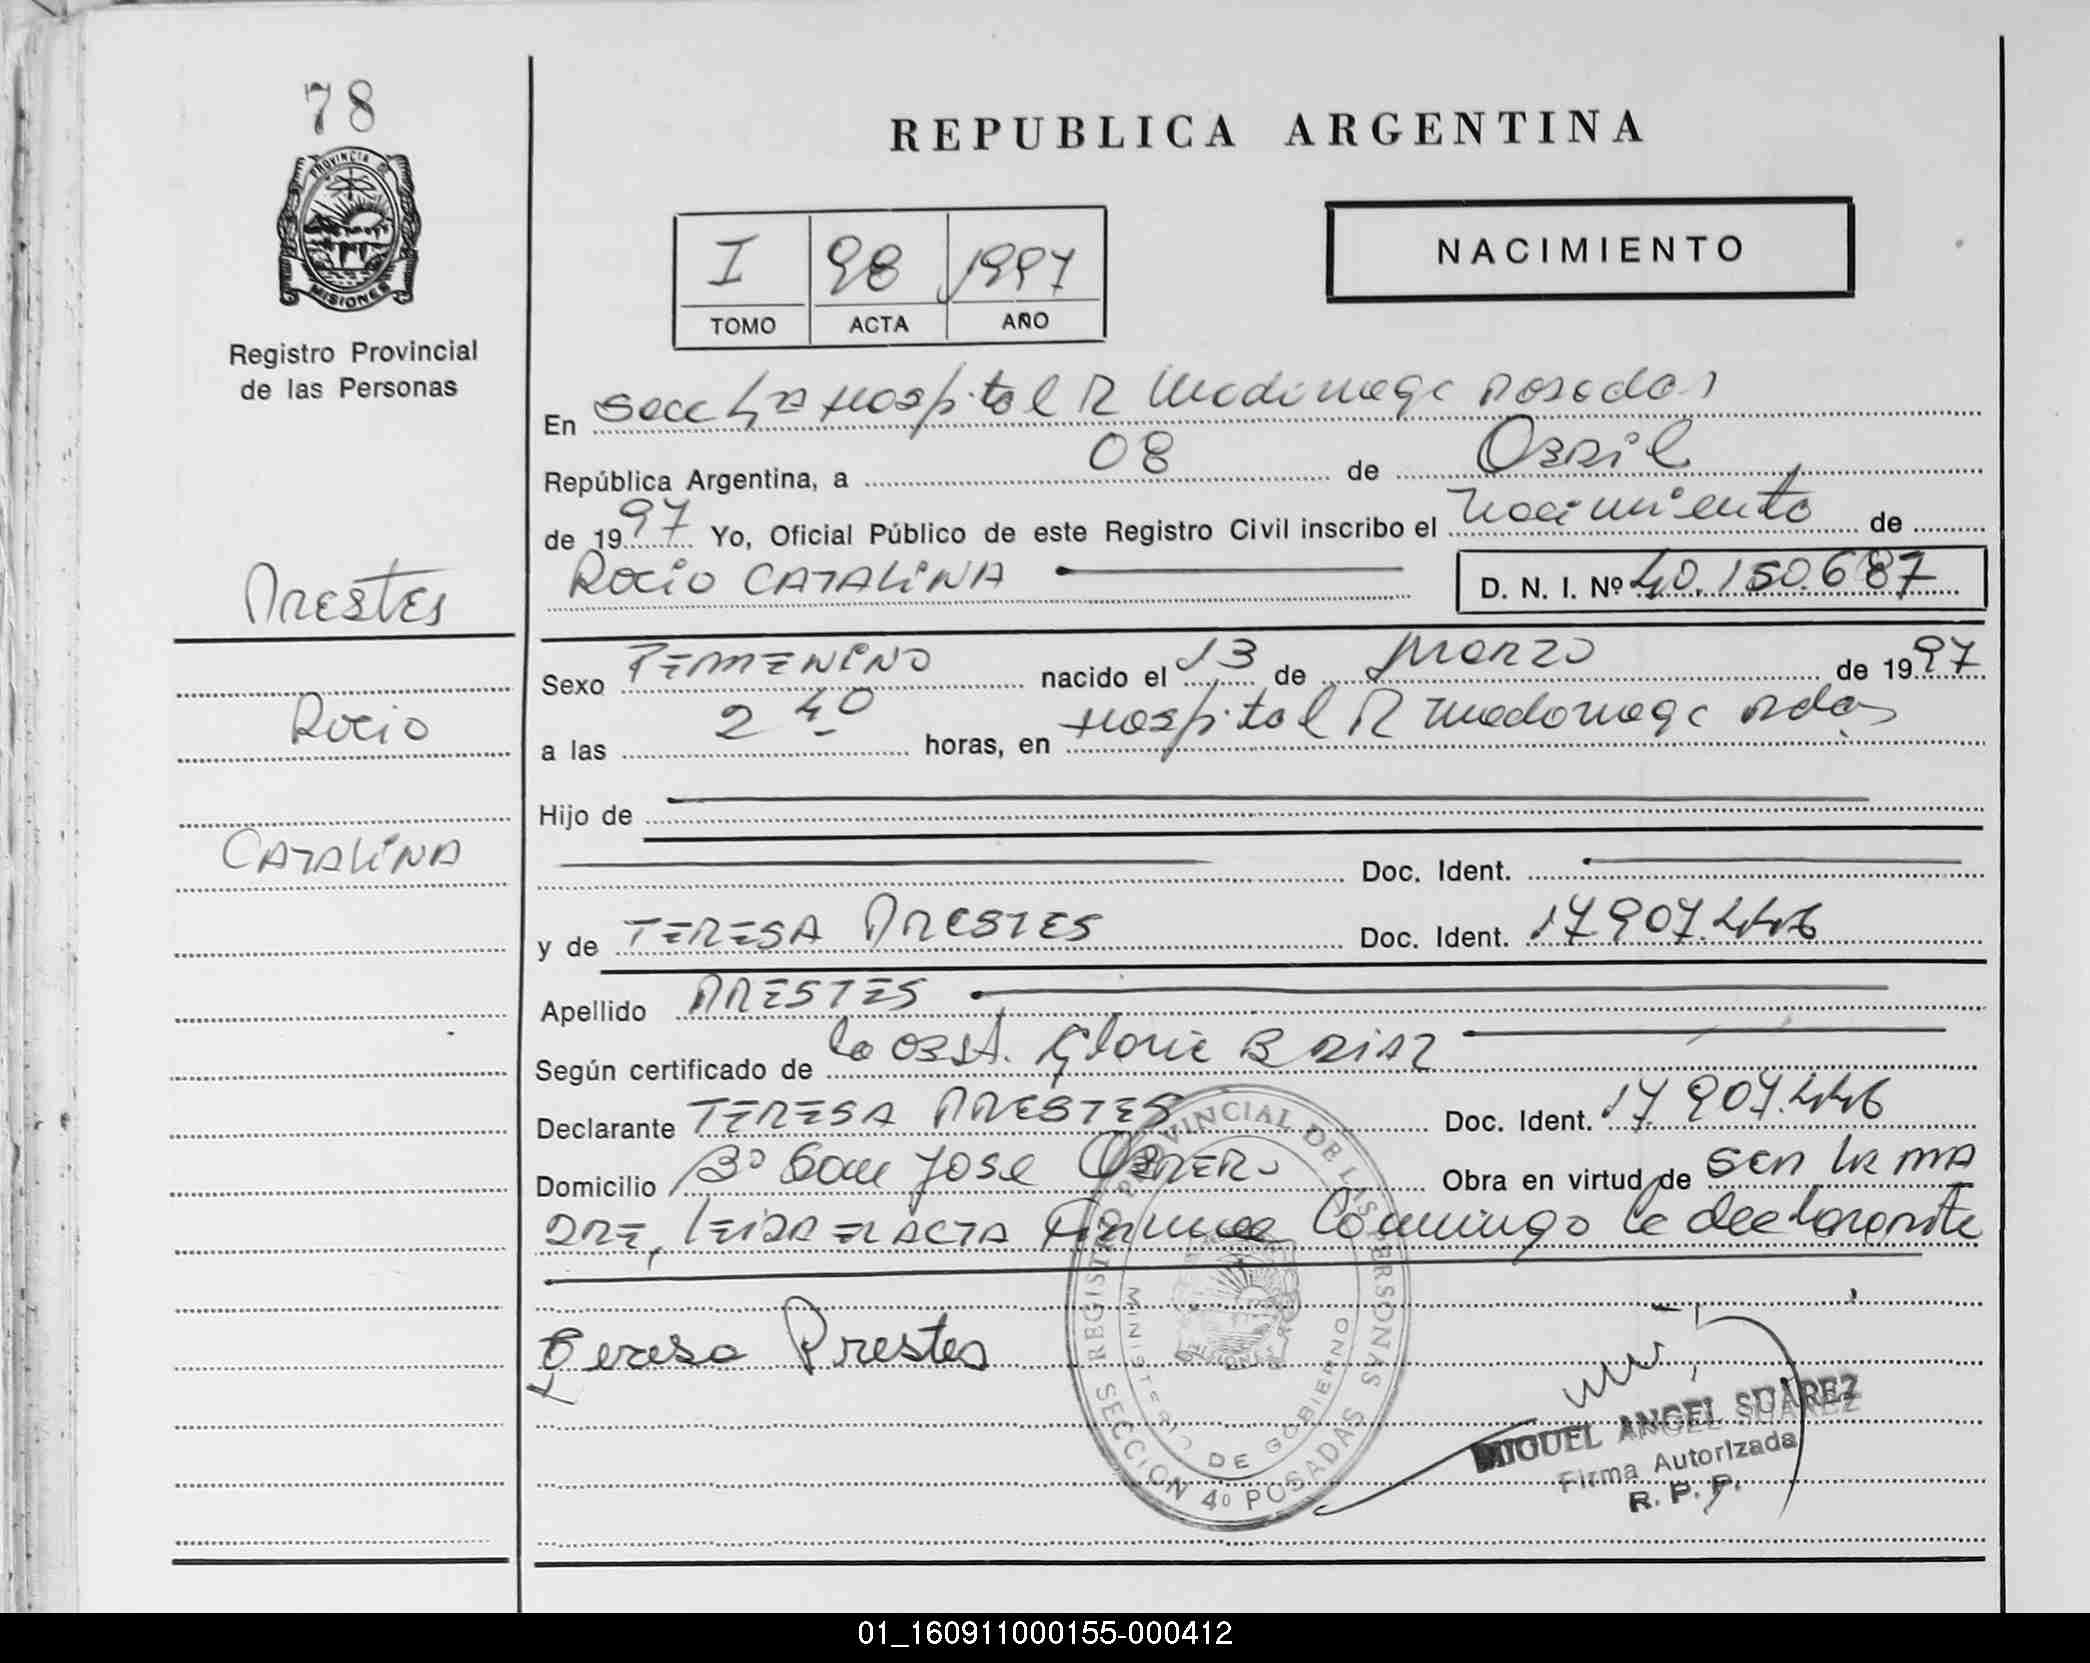 78
PROVINCIA DE
MISIONES
Registro Provincial
de las Personas
REPUBLICA ARGENTINA
I 98 1997
TOMO ACTA AÑO
NACIMIENTO
En Secc 4ta Hospital R Madariaga Posadas
República Argentina, a 08 de Abril
de 1997 Yo, Oficial Público de este Registro Civil inscribo el Nacimiento de
Rocio CATALINA D. N. I. Nº 40.150.687
Prestes
Sexo FEMENINO nacido el 13 de Marzo de 1997
Rocio
a las 2 40 horas, en Hospital R Madariaga Pdas
Hijo de
CATALINA
Doc. Ident.
y de TERESA PRESTES Doc. Ident. 17.907.446
Apellido PRESTES
Según certificado de la OBST. Gloria B DIAZ
Declarante TERESA PRESTES Doc. Ident. 17.907.446
Domicilio Bº San José OBRERO Obra en virtud de ser la MA
DRE, LEIDA EL ACTA Firma Conmigo la declarante
Teresa Prestes
REGISTRO PROVINCIAL DE LAS PERSONAS
MINISTERIO DE GOBIERNO
SECCION 4º POSADAS
MIGUEL ANGEL SUAREZ
Firma Autorizada
R. P. P.
01_160911000155-000412